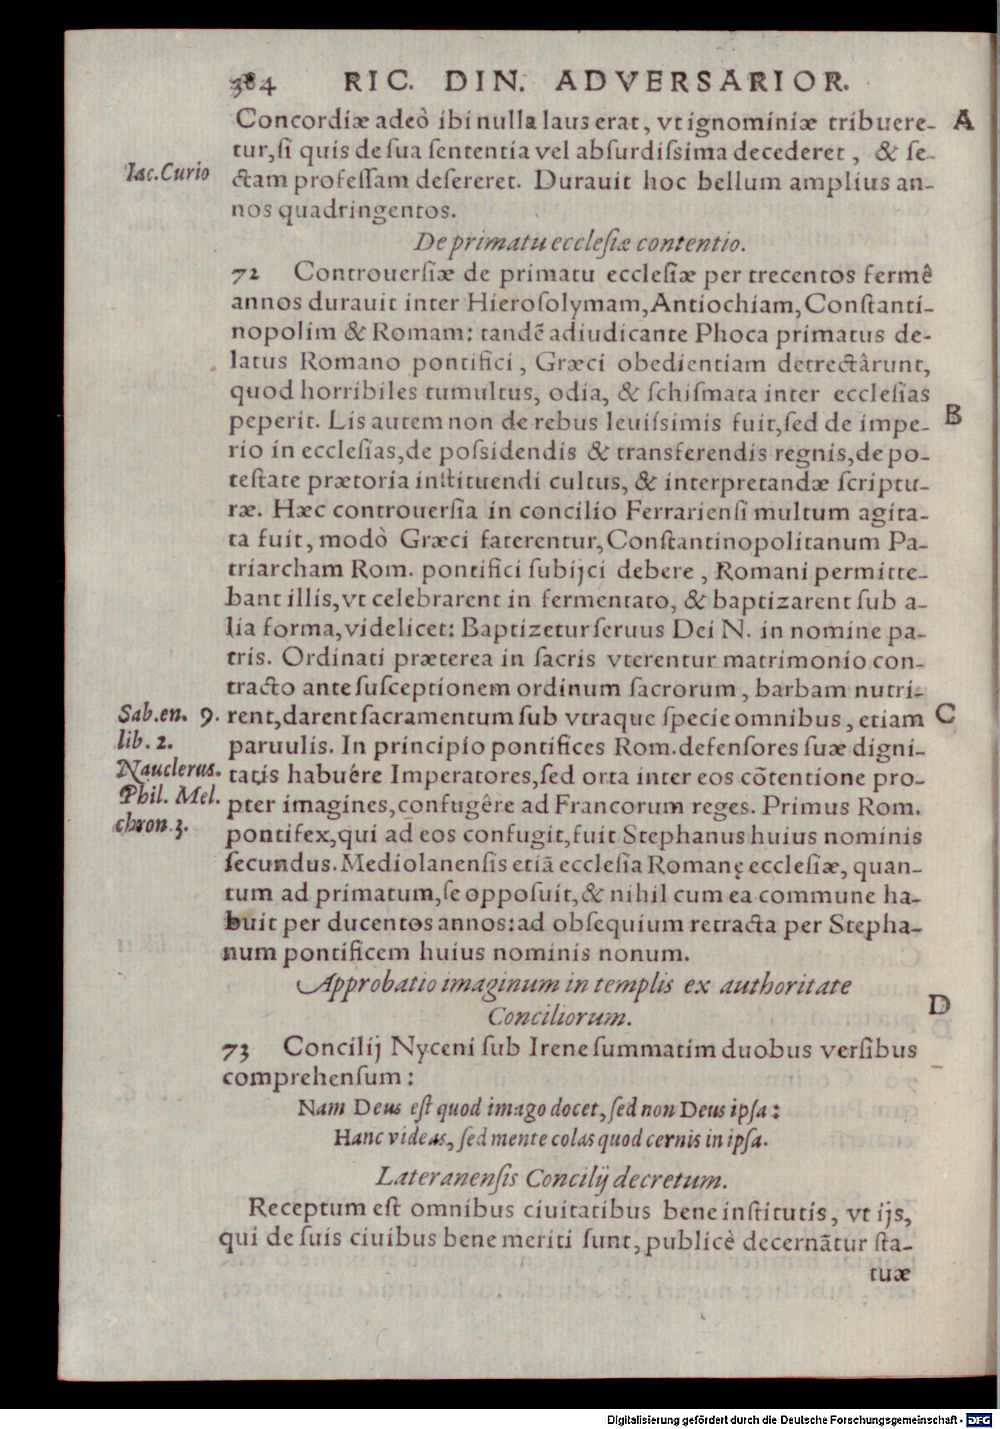 384 RIC. DIN. ADVERSARIOR.
Concordiæ adeò ibi nulla laus erat, vt ignominiæ tribuere- A
tur, ſi quis de ſua ſententia vel abſurdiſsima decederet, & ſe-
Iac. Curio
ctam profeſſam deſereret. Durauit hoc bellum amplius an-
nos quadringentos.
De primatu eccleſiæ contentio.
72 Controuerſiæ de primatu eccleſiæ per trecentos fermê
annos durauit inter Hieroſolymam, Antiochiam, Conſtanti-
nopolim & Romam: tandẽ adiudicante Phoca primatus de-
latus Romano pontifici, Græci obedientiam detrectârunt,
quod horribiles tumultus, odia, & ſchiſmata inter eccleſias
peperit. Lis autem non de rebus leuiſsimis fuit, ſed de impe- B
rio in eccleſias, de poſsidendis & transferendis regnis, de po-
teſtate prætoria inſtituendi cultus, & interpretandæ ſcriptu-
ræ. Hæc controuerſia in concilio Ferrarienſi multum agita-
ta fuit, modò Græci faterentur, Conſtantinopolitanum Pa-
triarcham Rom. pontifici ſubijci debere, Romani permitte-
bant illis, vt celebrarent in fermentato, & baptizarent ſub a-
lia forma, videlicet: Baptizetur ſeruus Dei N. in nomine pa-
tris. Ordinati præterea in ſacris vterentur matrimonio con-
tracto ante ſuſceptionem ordinum ſacrorum, barbam nutri-
Sab. en. 9.
rent, darent ſacramentum ſub vtraque ſpecie omnibus, etiam C
lib. 2.
paruulis. In principio pontifices Rom. defenſores ſuæ digni-
Nauclerus.
tatis habuêre Imperatores, ſed orta inter eos cõtentione pro-
Phil. Mel.
pter imagines, confugêre ad Francorum reges. Primus Rom.
chron. 3.
pontifex, qui ad eos confugit, fuit Stephanus huius nominis
ſecundus. Mediolanenſis etiã eccleſia Romanę eccleſiæ, quan-
tum ad primatum, ſe oppoſuit, & nihil cum ea commune ha-
buit per ducentos annos: ad obſequium retracta per Stepha-
num pontificem huius nominis nonum.
Approbatio imaginum in templis ex authoritate
Conciliorum. D
73 Concilij Nyceni ſub Irene ſummatim duobus verſibus
comprehenſum:
Nam Deus eſt quod imago docet, ſed non Deus ipſa:
Hanc videas, ſed mente colas quod cernis in ipſa.
Lateranenſis Concilij decretum.
Receptum eſt omnibus ciuitatibus bene inſtitutis, vt ijs,
qui de ſuis ciuibus bene meriti ſunt, publicè decernãtur ſta-
tuæ
Digitalisierung gefördert durch die Deutsche Forschungsgemeinschaft - DFG